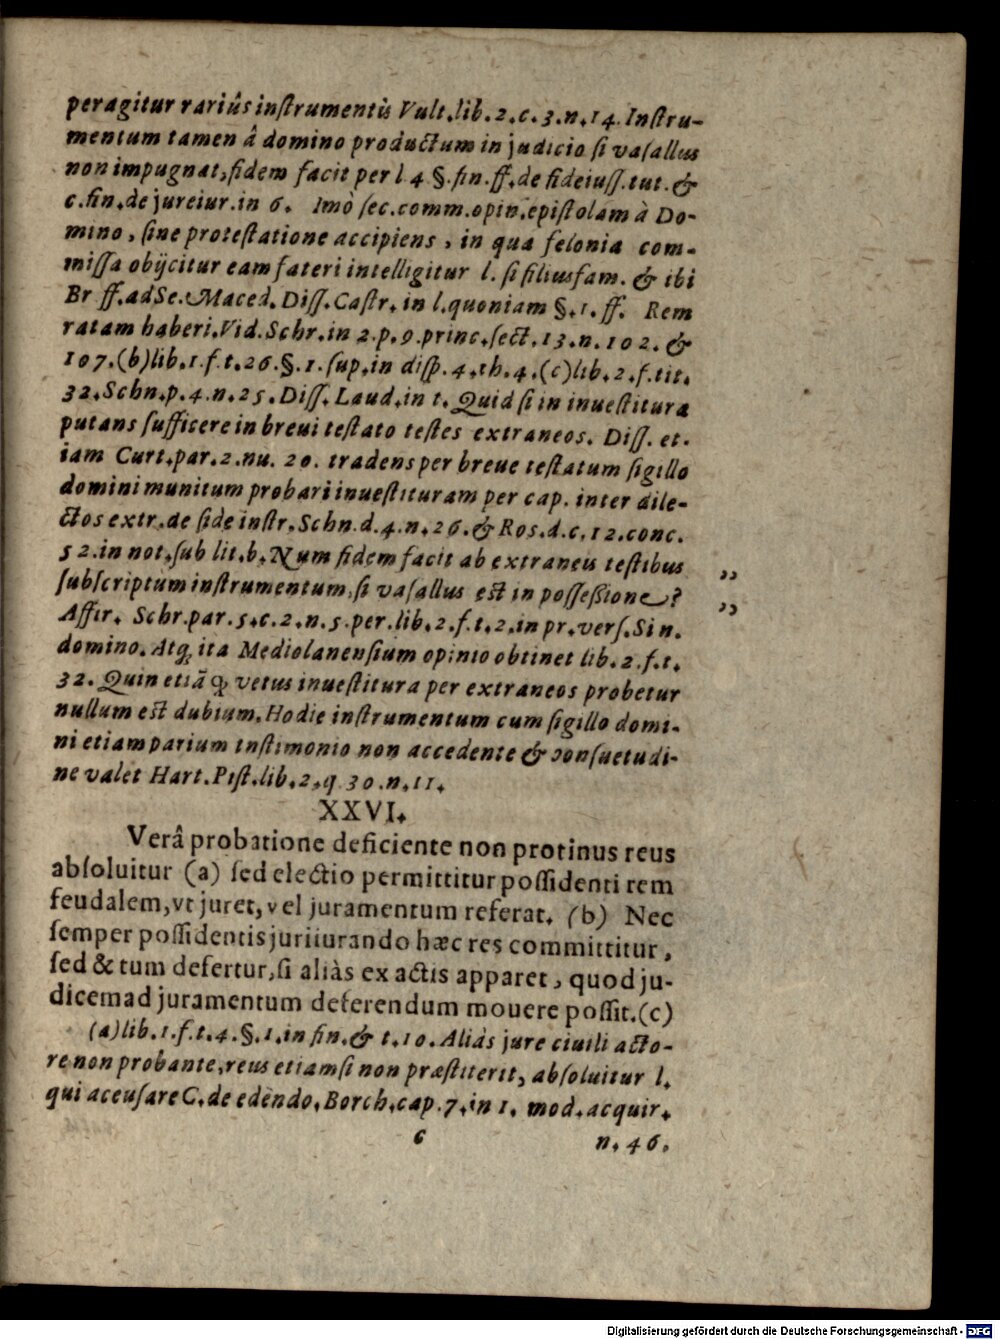 peragitur rariûs inſtrumentis Vult.lib.2.c.3.n.14. Inſtru-
mentum tamen â domino productum in judicio ſi vaſallus
non impugnat, fidem facit per l 4 §. fin. ff. de fideiuſſ. tut. &
c. fin. de jureiur. in 6. Imò ſec. comm. opin. epiſtolam à Do-
mino, ſine proteſtatione accipiens, in qua felonia com-
miſſa obijcitur eam fateri intelligitur l. ſi filiusfam. & ibi
Br ff. ad Sc. Maced. Diſſ. Caſtr. in l. quoniam §. 1. ff. Rem
ratam haberi. Vid. Schr. in 2. p. 9. princ. ſect. 13. n. 102. &
107. (b) lib. 1. f. t. 26. §. 1. ſup. in diſp. 4. th. 4. (c) lib. 2. f. tit.
32. Schn. p. 4. n. 25. Diſſ. Laud. in t. Quid ſi in inueſtitura
putans ſufficere in breui teſtato teſtes extraneos. Diſſ. et-
iam Curt. par. 2. nu. 20. tradens per breue teſtatum ſigillo
domini munitum probari inueſtituram per cap. inter dile-
ctos extr. de fide inſtr. Schn. d. 4. n. 26. & Ros. d. c. 12. conc.
52. in not. ſub lit. b. Num fidem facit ab extraneis teſtibus „
ſubſcriptum inſtrumentum, ſi vaſallus eſt in poſſeßione? „
Affir. Schr. par. 5. c. 2. n. 5. per. lib. 2. f. t. 2. in pr. verſ. Si n.
domino. Atq; ita Mediolanenſium opinio obtinet lib. 2. f. t.
32. Quin etiã ꝙ vetus inueſtitura per extraneos probetur
nullum eſt dubium. Hodie inſtrumentum cum ſigillo domi-
ni etiam parium inſtimonio non accedente & conſuetudi-
ne valet Hart. Piſt. lib. 2, q 30. n. 11.
XXVI.
Verâ probatione deficiente non protinus reus
abſoluitur (a) ſed electio permittitur poſſidenti rem
feudalem, vt juret, vel juramentum referat. (b) Nec
ſemper poſſidentis juriiurando hæc res committitur,
ſed & tum defertur, ſi aliàs ex actis apparet, quod ju-
dicem ad juramentum deferendum mouere poſſit. (c)
(a) lib. 1. f. t. 4. §. 1. in fin. & t. 10. Aliàs jure ciuili acto-
re non probante, reus etiamſi non præſtiterit, abſoluitur l.
qui accuſare C. de edendo. Borch. cap. 7. in 1. mod. acquir.
c n. 46.
Digitalisierung gefördert durch die Deutsche Forschungsgemeinschaft - DFG